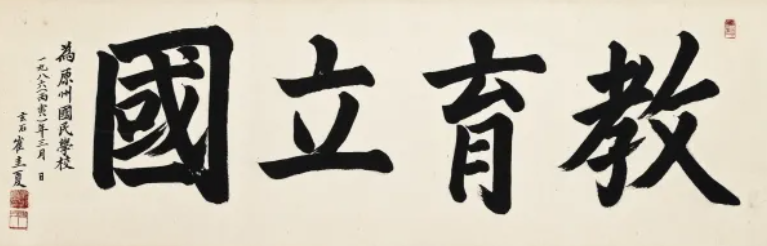 教育立國
為原州國民學校
一九八六(丙寅)年三月 日
玄石 崔圭夏